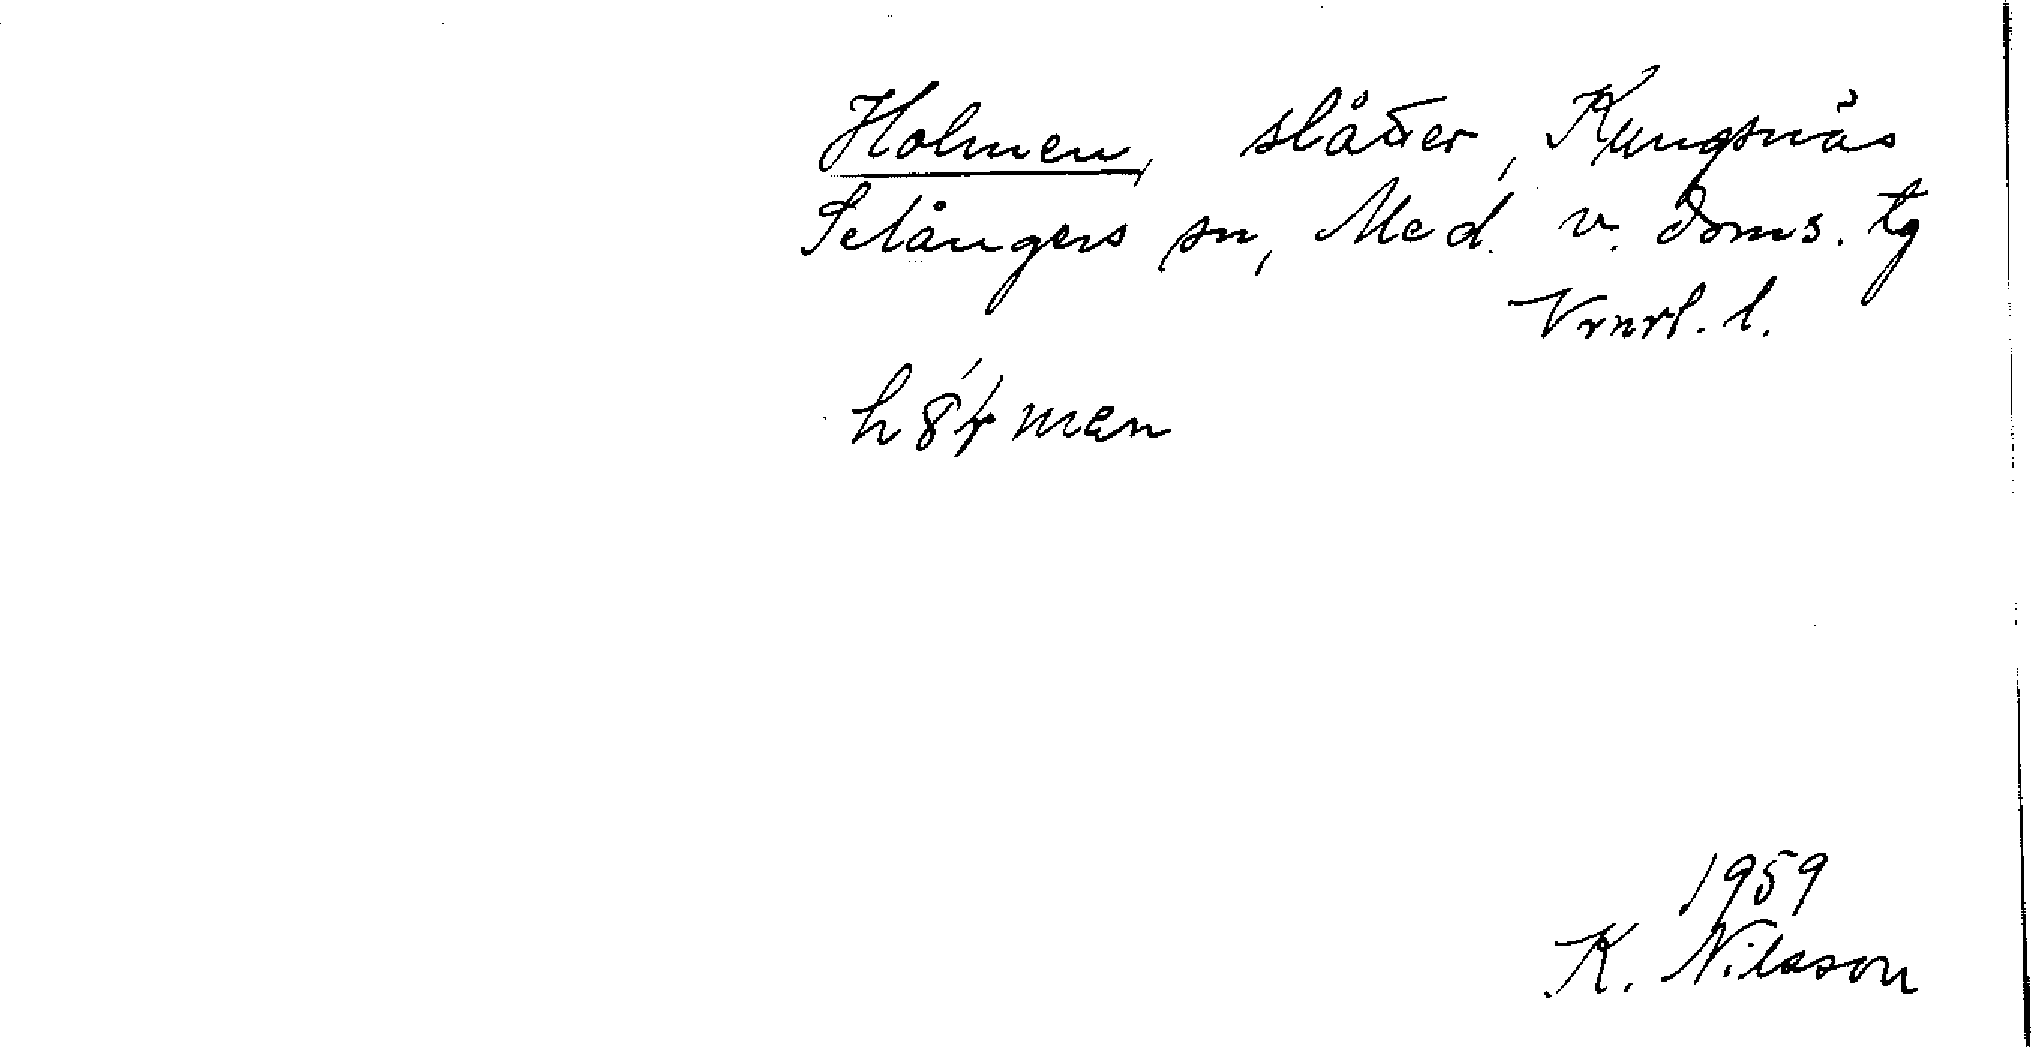 Holmen, slåtter, Kungsnäs
Selångers sn, Med. v. doms. tg
Vrnrl. l.
1959
K. Nilsson